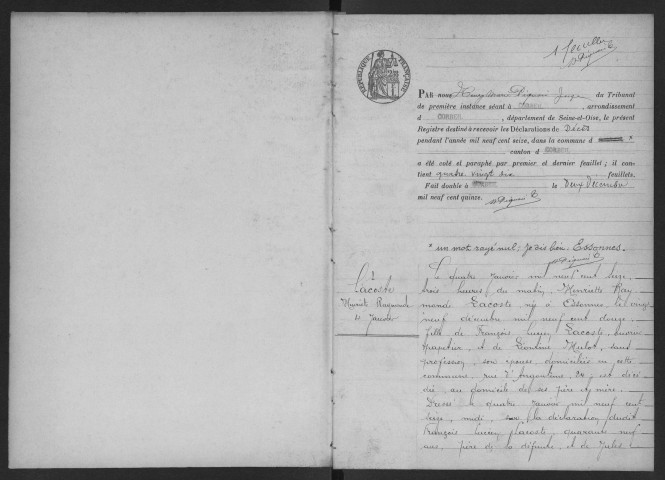 1er feuillet
RÉPUBLIQUE FRANÇAISE
PAR nous Juge du Tribunal
de première instance séant à CORBEIL, arrondissement
d CORBEIL, département de Seine-et-Oise, le présent
Registre destiné à recevoir les Déclarations de Décès
pendant l'année mil neuf cent seize, dans la commune d *
canton d CORBEIL
a été coté et paraphé par premier et dernier feuillet ; il con-
tient quatre vingt six feuillets.
Fait double à CORBEIL le Deux Décembre
mil neuf cent quinze.
* un mot rayé nul : je dis bien : Essonnes.
1
Lacoste
Henriette Raymonde
4 Janvier
Le quatre janvier mil neuf cent seize,
trois heures du matin, Henriette Ray
monde Lacoste, née à Essonnes le vingt
neuf décembre mil neuf cent douze,
fille de François Lucien Lacoste, ouvrier
papetier, et de Léontine Mulot, sans
profession, son épouse, domiciliés en cette
commune, rue d'Angoulême, 84, est décé
dée au domicile de ses père et mère.
Dressé le quatre janvier mil neuf cent
seize, midi, sur la déclaration dudit
François Lucien Lacoste, quarante neuf
ans, père de la défunte, et de Jules